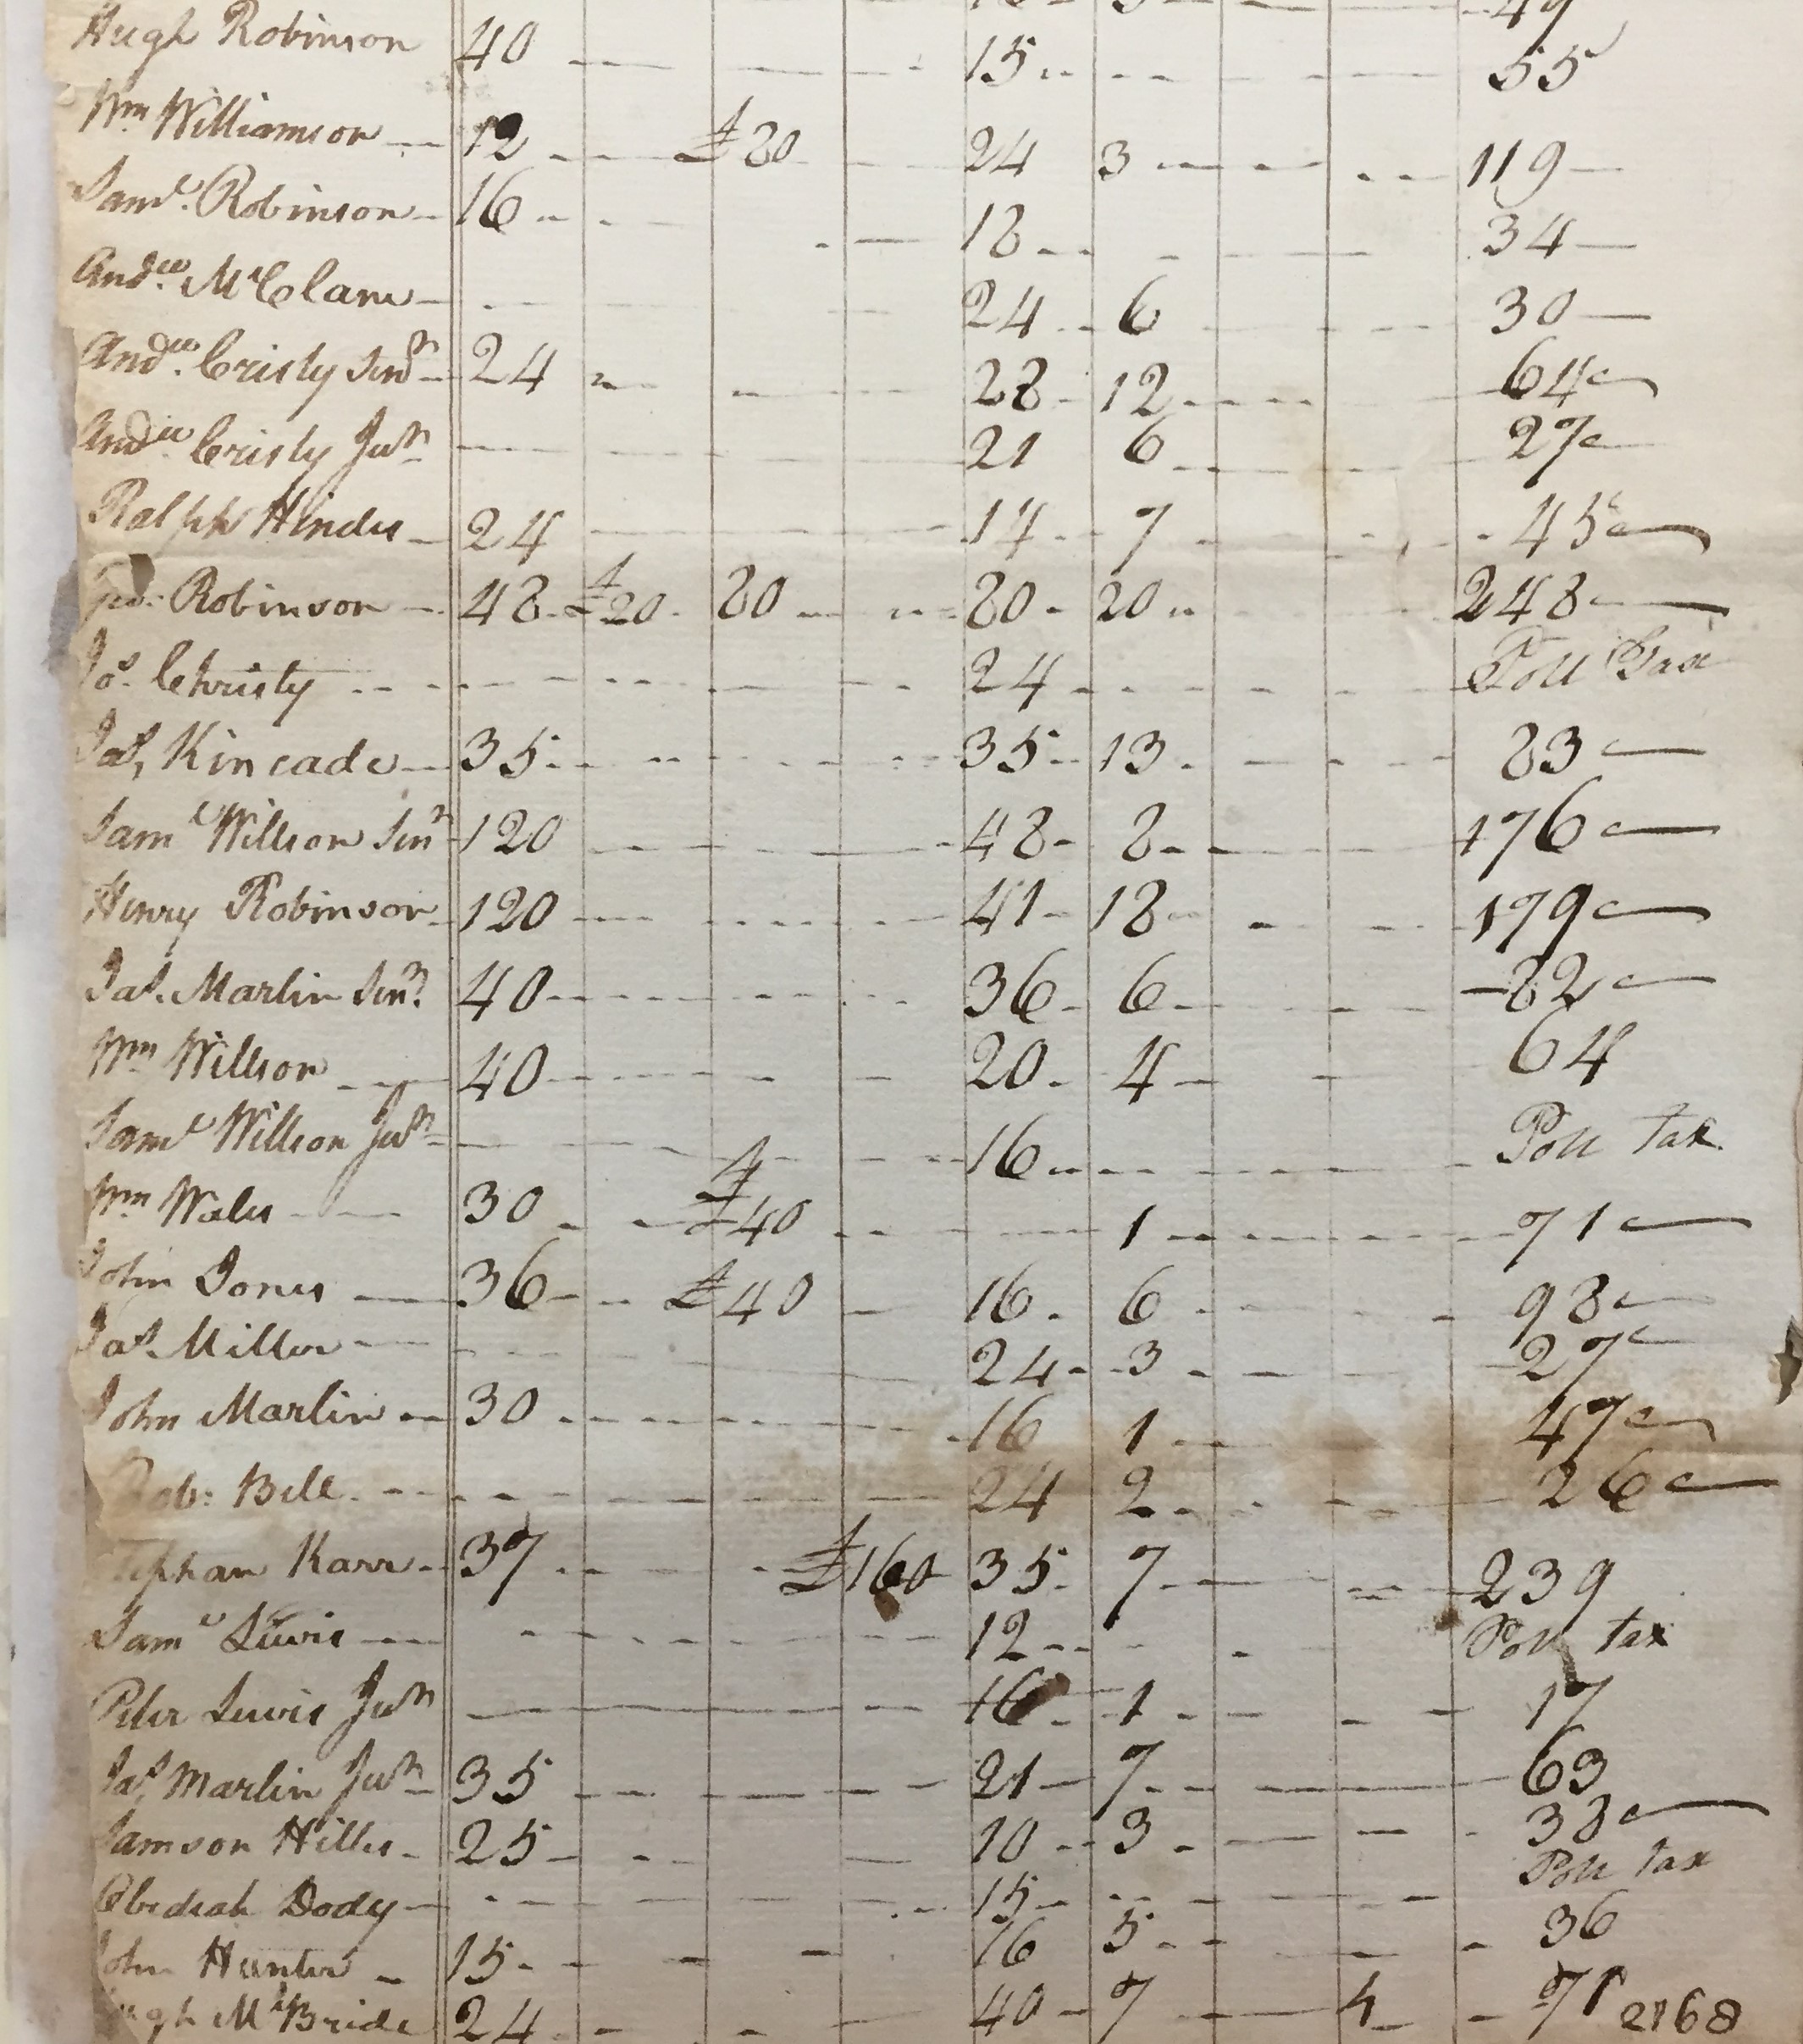 49
Hugh Robinson 40 15 55
Wm Williamson 12 £80 24 3 119
Saml. Robinson 16 18 34
Andw. McClane 24 6 30
Andw. Cristy Senr 24 28 12 64
Andw. Cristy Junr 21 6 27
Ralph Hindes 24 14 7 45
Robinson 48 £20 80 80 20 248
Jos. Christy 24 Poll Tax
Jas, Kincade 35 35 13 83
Saml Willson Senr 120 48 8 176
Henry Robinson 120 41 18 179
Jas. Marlin Senr. 40 36 6 82
Wm Willson 40 20 4 64
Saml Willson Junr 16 Poll tax
Wm Wales 30 £40 1 71
John Jones 36 £40 16 6 98
Jas. Miller 24 3 27
John Marlin 30 16 1 47
Rob: Bell 24 2 26
Stephan Karr 37 £160 35 7 239
Saml Lewis 12 Poll tax
Peter Lewis Junr 16 1 17
Jas, Marlin Junr 35 21 7 63
Samson Hilles 25 10 3 38
Obediah Dody 15 Poll tax
John Hunter 15 16 5 36
Hugh McBride 24 40 7 71 2168